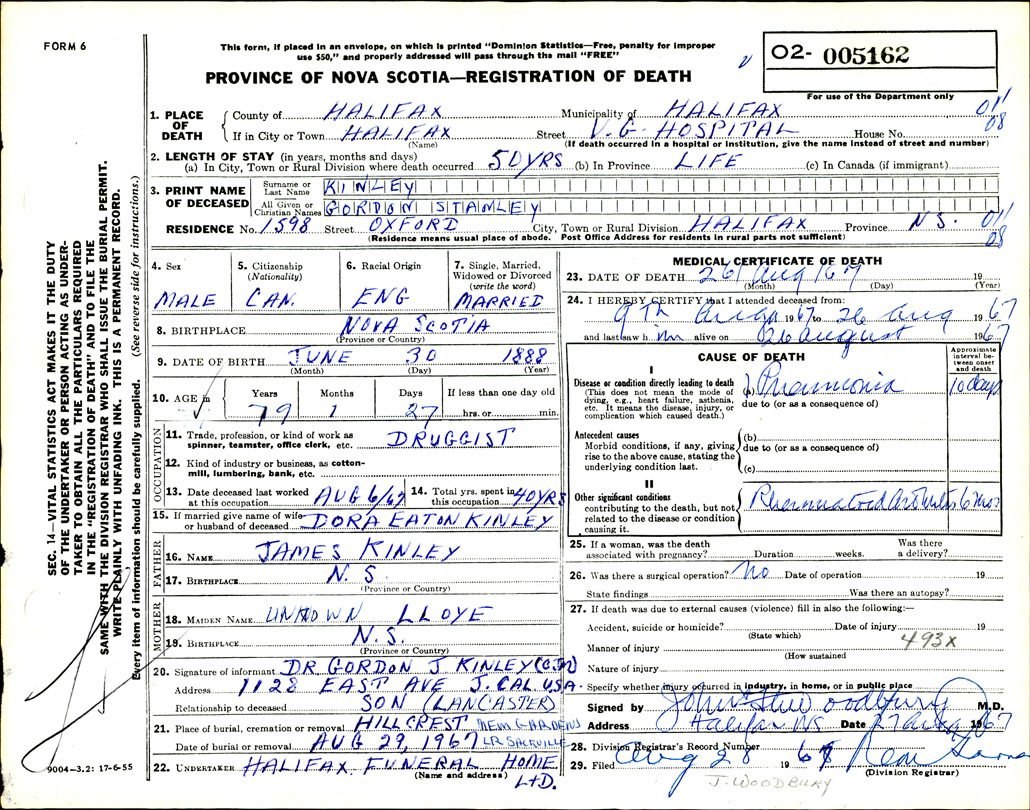 FORM 6
This form, if placed in an envelope, on which is printed "Dominion Statistics—Free, penalty for improper
use $50," and properly addressed will pass through the mail "FREE"
PROVINCE OF NOVA SCOTIA—REGISTRATION OF DEATH
O2- 005162
For use of the Department only
1. PLACE OF DEATH
County of HALIFAX Municipality of HALIFAX 011
If in City or Town HALIFAX Street V.G. HOSPITAL House No. 08
(Name) (If death occurred in a hospital or institution, give the name instead of street and number)
2. LENGTH OF STAY (in years, months and days)
(a) In City, Town or Rural Division where death occurred 50 YRS (b) In Province LIFE (c) In Canada (if immigrant)
3. PRINT NAME OF DECEASED
Surname or Last Name KINLEY
All Given or Christian Names GORDON STANLEY
RESIDENCE No. 1598 Street OXFORD City, Town or Rural Division HALIFAX Province N.S. 011
(Residence means usual place of abode. Post Office Address for residents in rural parts not sufficient) 08
4. Sex MALE
5. Citizenship (Nationality) CAN.
6. Racial Origin ENG
7. Single, Married, Widowed or Divorced (write the word) MARRIED
8. BIRTHPLACE NOVA SCOTIA
(Province or Country)
9. DATE OF BIRTH JUNE 30 1888
(Month) (Day) (Year)
10. AGE in Years Months Days If less than one day old
79 1 27 hrs. or min.
OCCUPATION
11. Trade, profession, or kind of work as spinner, teamster, office clerk, etc. DRUGGIST
12. Kind of industry or business, as cotton-mill, lumbering, bank, etc.
13. Date deceased last worked at this occupation AUG 6/67
14. Total yrs. spent in this occupation 40 YRS
15. If married give name of wife or husband of deceased DORA EATON KINLEY
FATHER
16. NAME JAMES KINLEY
17. BIRTHPLACE N.S.
(Province or Country)
MOTHER
18. MAIDEN NAME UNKNOWN LLOYE
19. BIRTHPLACE N.S.
(Province or Country)
20. Signature of informant DR. GORDON J KINLEY
Address 1128 EAST AVE J. CAL. USA.
Relationship to deceased SON (LANCASTER)
21. Place of burial, cremation or removal HILLCREST MEM. GARDENS
Date of burial or removal AUG 29, 1967 LR SACKVILLE
22. UNDERTAKER HALIFAX FUNERAL HOME LTD.
(Name and address)
9004—3.2: 17-6-55
MEDICAL CERTIFICATE OF DEATH
23. DATE OF DEATH 26/Aug/67 19
(Month) (Day) (Year)
24. I HEREBY CERTIFY that I attended deceased from:
9th Aug 1967 to 26 Aug 1967
and last saw him alive on 26 August 1967
CAUSE OF DEATH
Approximate interval between onset and death
I
Disease or condition directly leading to death
(This does not mean the mode of dying, e.g., heart failure, asthenia, etc. It means the disease, injury, or complication which caused death.)
(a) Pneumonia 10 days
due to (or as a consequence of)
Antecedent causes
Morbid conditions, if any, giving rise to the above cause, stating the underlying condition last.
(b)
due to (or as a consequence of)
(c)
II
Other significant conditions
contributing to the death, but not related to the disease or condition causing it.
Rheumatoid Arthritis 6 mos
25. If a woman, was the death associated with pregnancy? Duration weeks. Was there a delivery?
26. Was there a surgical operation? No Date of operation 19
State findings Was there an autopsy?
27. If death was due to external causes (violence) fill in also the following:—
Accident, suicide or homicide? Date of injury 19
(State which) 493x
Manner of injury
(How sustained
Nature of injury
Specify whether injury occurred in industry, in home, or in public place
Signed by John Woodbury M.D.
Address Halifax NS Date 27 Aug 1967
28. Division Registrar's Record Number
29. Filed Aug 28 1967
(Division Registrar)
J. WOODBURY
SEC. 14—VITAL STATISTICS ACT MAKES IT THE DUTY
OF THE UNDERTAKER OR PERSON ACTING AS UNDER-
TAKER TO OBTAIN ALL THE PARTICULARS REQUIRED
IN THE "REGISTRATION OF DEATH" AND TO FILE THE
SAME WITH THE DIVISION REGISTRAR WHO SHALL ISSUE THE BURIAL PERMIT.
WRITE PLAINLY WITH UNFADING INK. THIS IS A PERMANENT RECORD.
Every item of information should be carefully supplied. (See reverse side for instructions.)